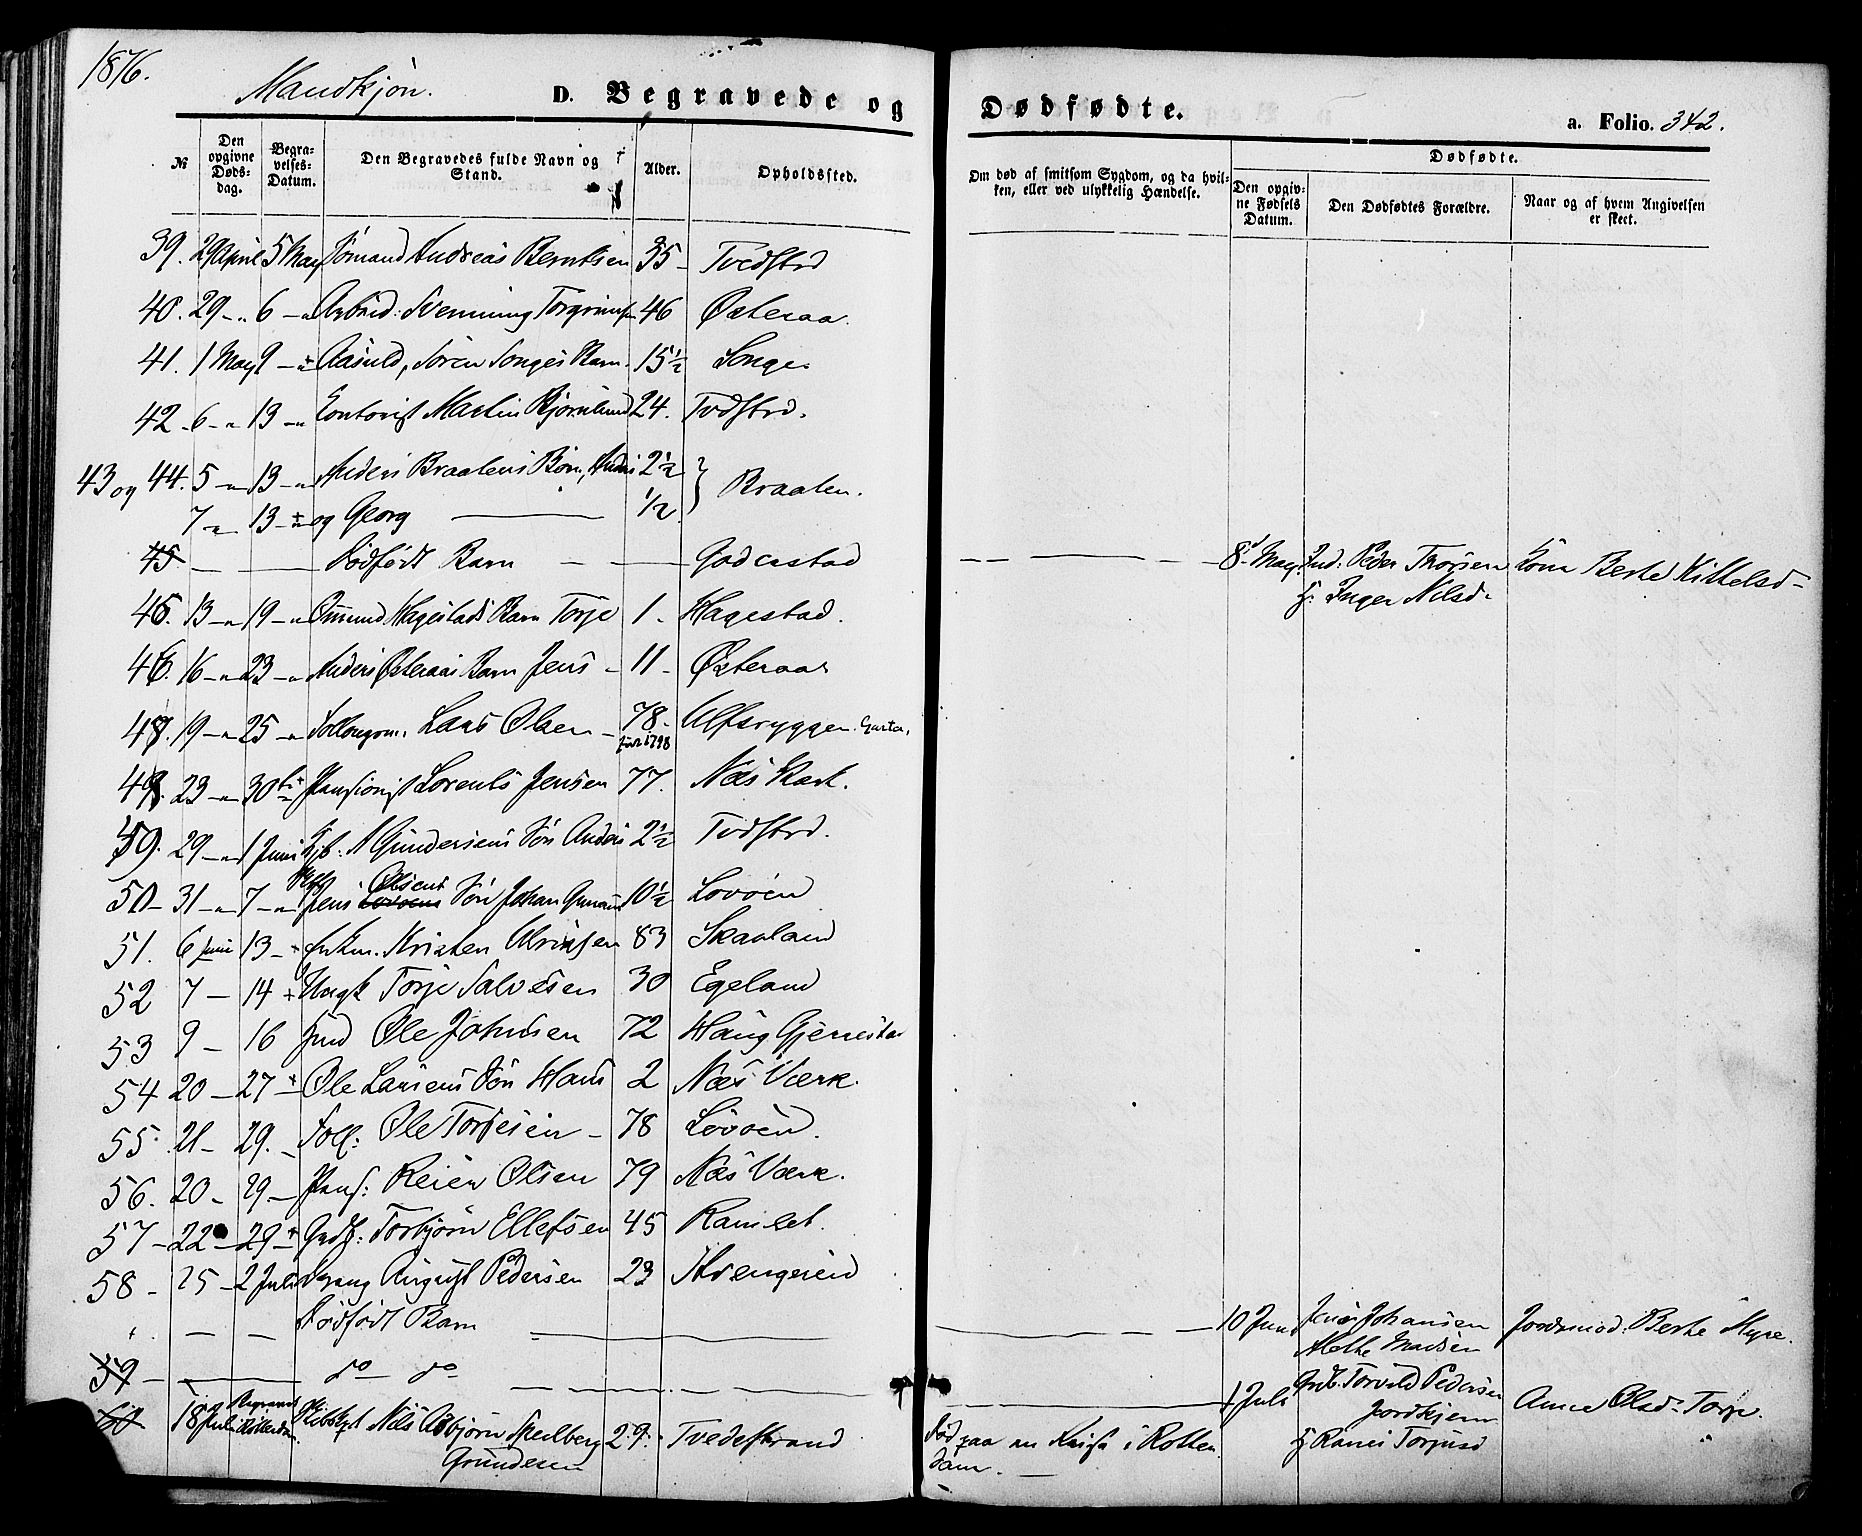 1876.
Mandkjön.
D. Begravede og Dødfødte.
a. Folio. 342.
№
Den opgivne Døds-dag.
Begra-velses-Datum.
Den Begravedes fulde Navn og Stand.
Alder.
Opholdssted.
Om død af smitsom Sygdom, og da hvil-ken, eller ved ulykkelig Hændelse.
Dødfødte.
Den opgiv-ne Fødsels Datum.
Den Dødfødtes Forældre.
Naar og af hvem Angivelsen er skeet.
39. 29 April 5 May Sömand Andreas Berntsen 35 - Tvedstrd
40. 29 - " 6 - " Arbeid: Svenning Torgrimsen 46 Østeraa.
41. 1 May 9 - " Aasuld, Sören Songes Barn. 15½ Songe
42 - 6 - " 13 - " Contorist Martin Bjornlund 24. Tvdstrd.
43 og 44. 5 - " 13 - " Anders Braatens Börn, Anders 2½ } Braaten.
7 - " 13 - " og Georg ½
45 — — Dödfödt Barn — — Goderstad — — 8 May Ind: Peder Thorsen Kone Berte Kittelsd -
H: Inger Nilsd.
45. 13 - " 19 - " Omund Hagestads Barn Torje 1. Hagestad.
46. 16 - " 23 - " Anders Østeraas Barn Jens - 11 - Østeraas
47. 19 - " 25 - " Lars Olsen - 78. Ulfsryggen
født 1798
48. 23 - " 30 Pensionist Lorents Jensen 77. Næs Værk.
49. 29 - " 1 Juni Kjb: A Gundersens Sön Anders 2½ Tvdstrd.
50 - 31 - " 7 - " Jens Olsens Sön Johan Gunnard 10½ Lovöen
51. 6 Juni 13 - Kristen Ulriksen 83 Skaaland
52 7 - 14 + Ungk Torje Salvesen 30 Egeland
53 9 - 16 Ind Ole Johnsen 72 Haug Gjerrestad
54 20 - 27 + Ole Larsens Sön Hans 2 Næs Værk.
55. 21 - 29. - Foll: Ole Torjesen - 78 Lövöen.
56. 20 - 29. - Pens: Reier Olsen 79 Næs Værk.
57 - 22 - 29 - + Grdf: Torbjörn Ellefsen 45 Ramlet.
58 - 25 - 2 Juli August Pedersen 23 Kvengeied
" — — Dödfödt Barn — — 10 Juni Jens Johansen Jordemod. Berte Myre.
Alethe Madsen
59 - — do do — — 1 Juli Grdb. Torvild Pedersen Anne Olsd. Torp.
Jordkjern
H Ranei Torjusd
60 18 Juli Begravet i Rotterdam Nils Asbjörn Skeelberg 29. Tvedestrand Död paa en Reise i Rotter
Gundersen dam. —